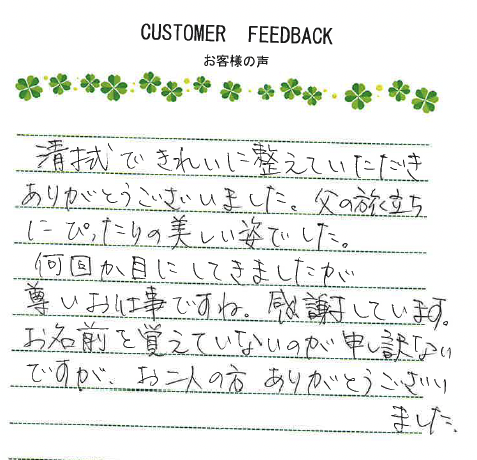 CUSTOMER FEEDBACK
お客様の声
清拭できれいに整えていただき
ありがとうございました。父の旅立ち
にぴったりの美しい姿でした。
何回か目にしてきましたが
尊いお仕事ですね。感謝しています。
お名前を覚えていないのが申し訳ない
ですが、お二人の方ありがとうござい
ました。